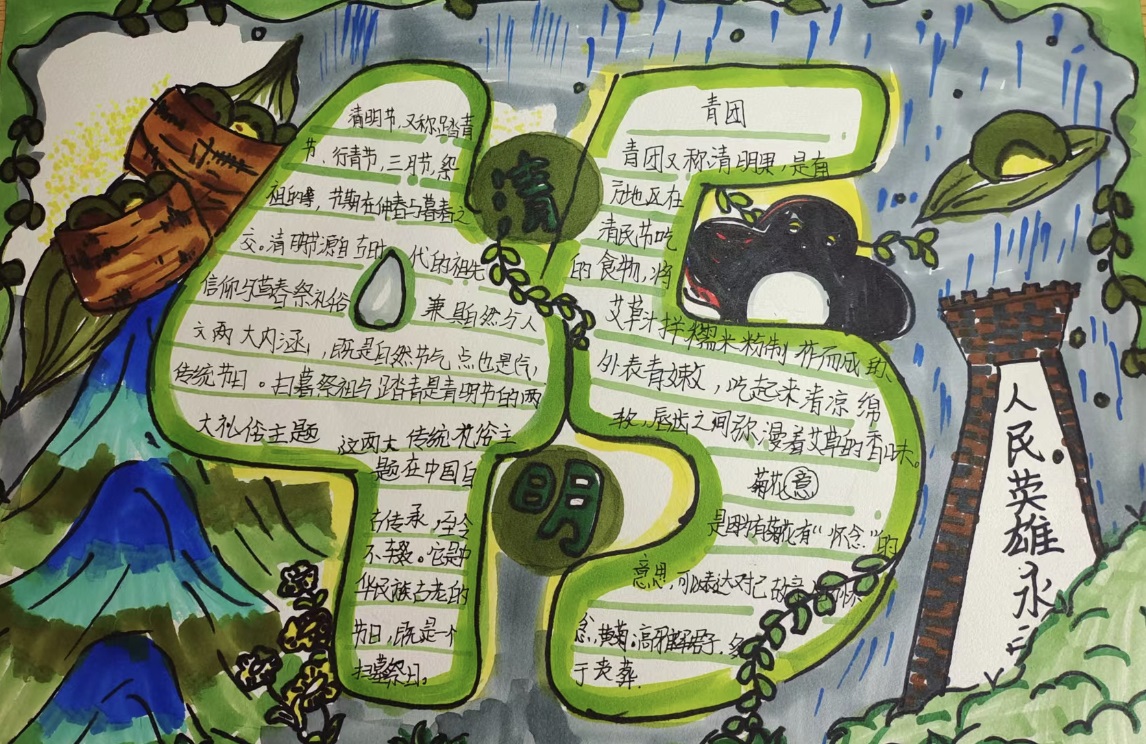 清明节,又称踏青
节、行青节,三月节,祭
祖,节期在仲春与暮春之
交。清明节源自 代的祖先
信仰与春祭礼俗 兼具自然与人
文两大内涵,既是自然节气点也是
传统节日。扫墓祭祖与踏青是青明节日的两
大礼俗主题 这两大传统礼俗主
题在中国自
古传承,至今
不辍。它是中
华民族古老的
节日,既是一个
扫墓祭祖。
清
明
青团
青团又称清明果,是
地区在
清民节吃
的食物,将
艾草汁拌糯米粉制作而成
外表青嫩,吃起来清凉绵
软,唇齿之间弥漫着艾草的香味。
菊花意
是因有菊花有“怀念”的
意思,可以表达对已故
念,黄菊。高雅
于丧葬
人民英雄永